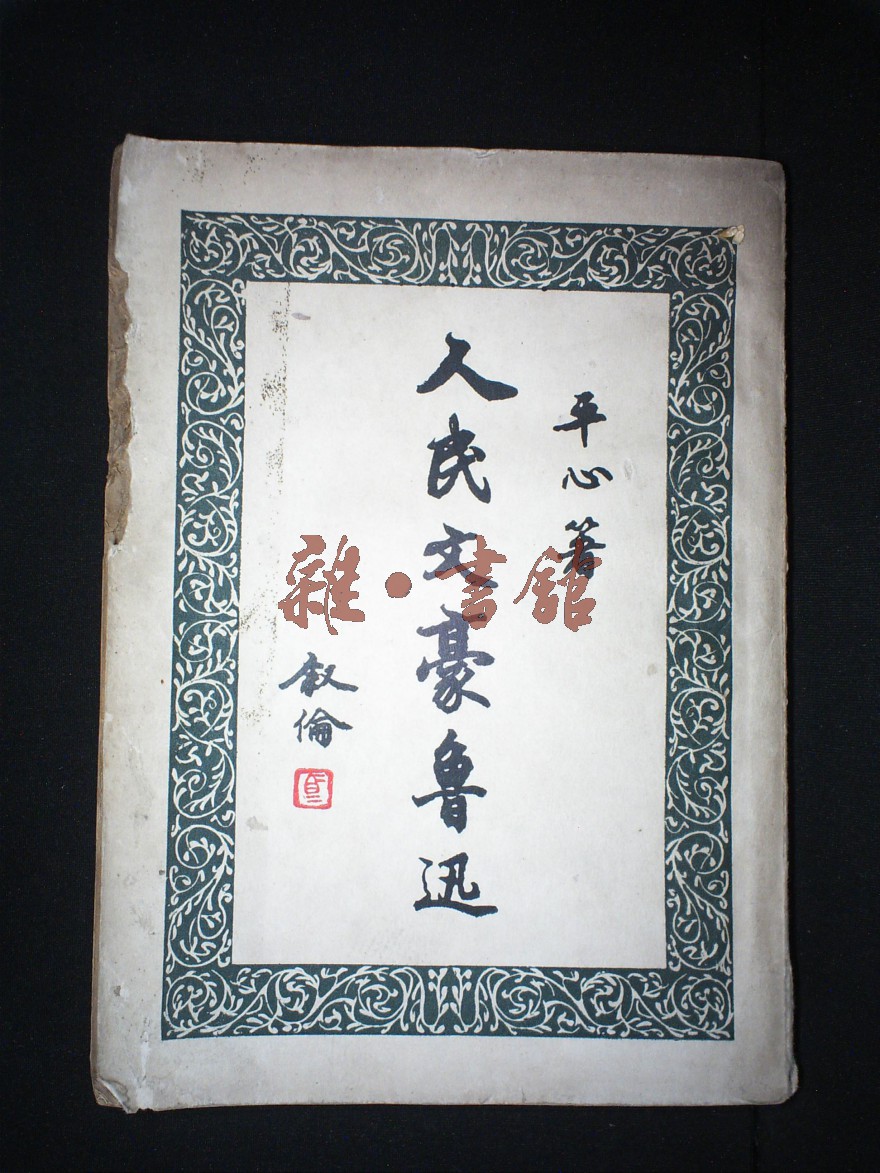 平心著
人民文豪魯迅
叙倫
雜·書館